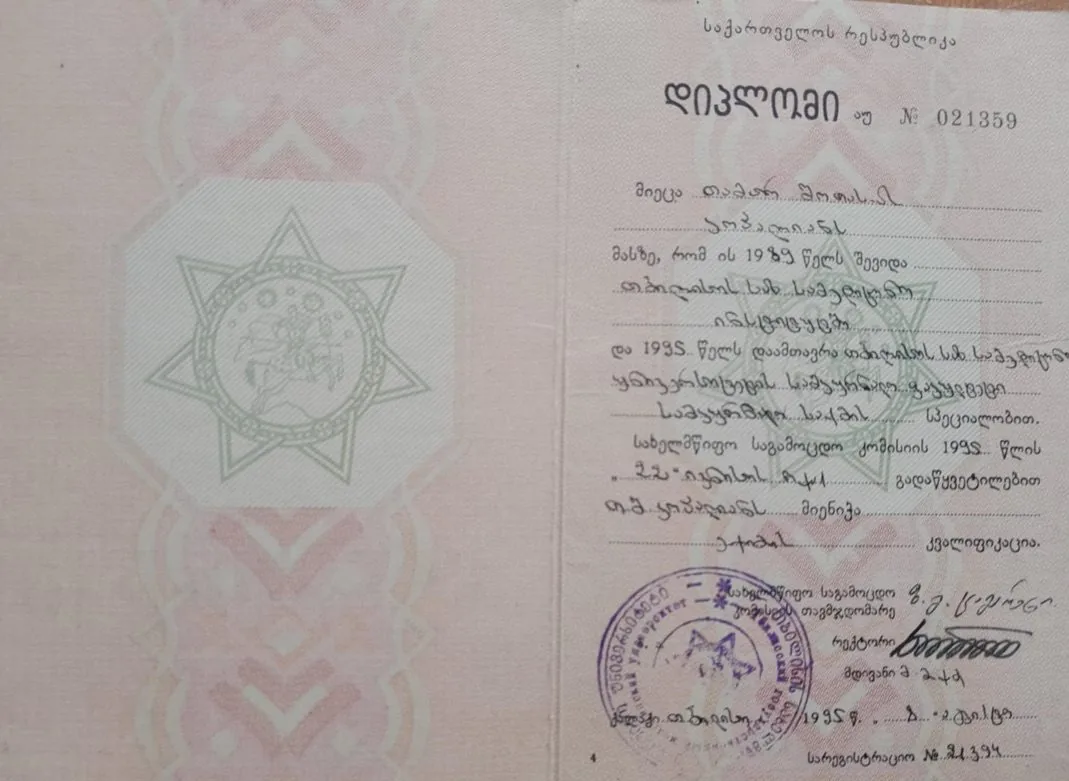 საქართველოს რესპუბლიკა
დიპლომი აუ № 021359
მიეცა თამარ შოთას ას
კობალიანს
მასზე, რომ ის 1989 წელს შევიდა
თბილისის სახ. სამედიცინო
ინსტიტუტში
და 1995 წელს დაამთავრა თბილისის სახ. სამედიცინო
უნივერსიტეტის სამკურნალო ფაკულტეტი
სამკურნალო საქმის სპეციალობით.
სახელმწიფო საგამოცდო კომისიის 1995 წლის
„22“ ივნისის გადაწყვეტილებით
კობალიანს მიენიჭა
ექიმის კვალიფიკაცია.
სახელმწიფო საგამოცდო
კომისიის თავმჯდომარე
რექტორი
მდივანი
ქალაქი თბილისი 1995 წ. „
4 სარეგისტრაციო № 21394